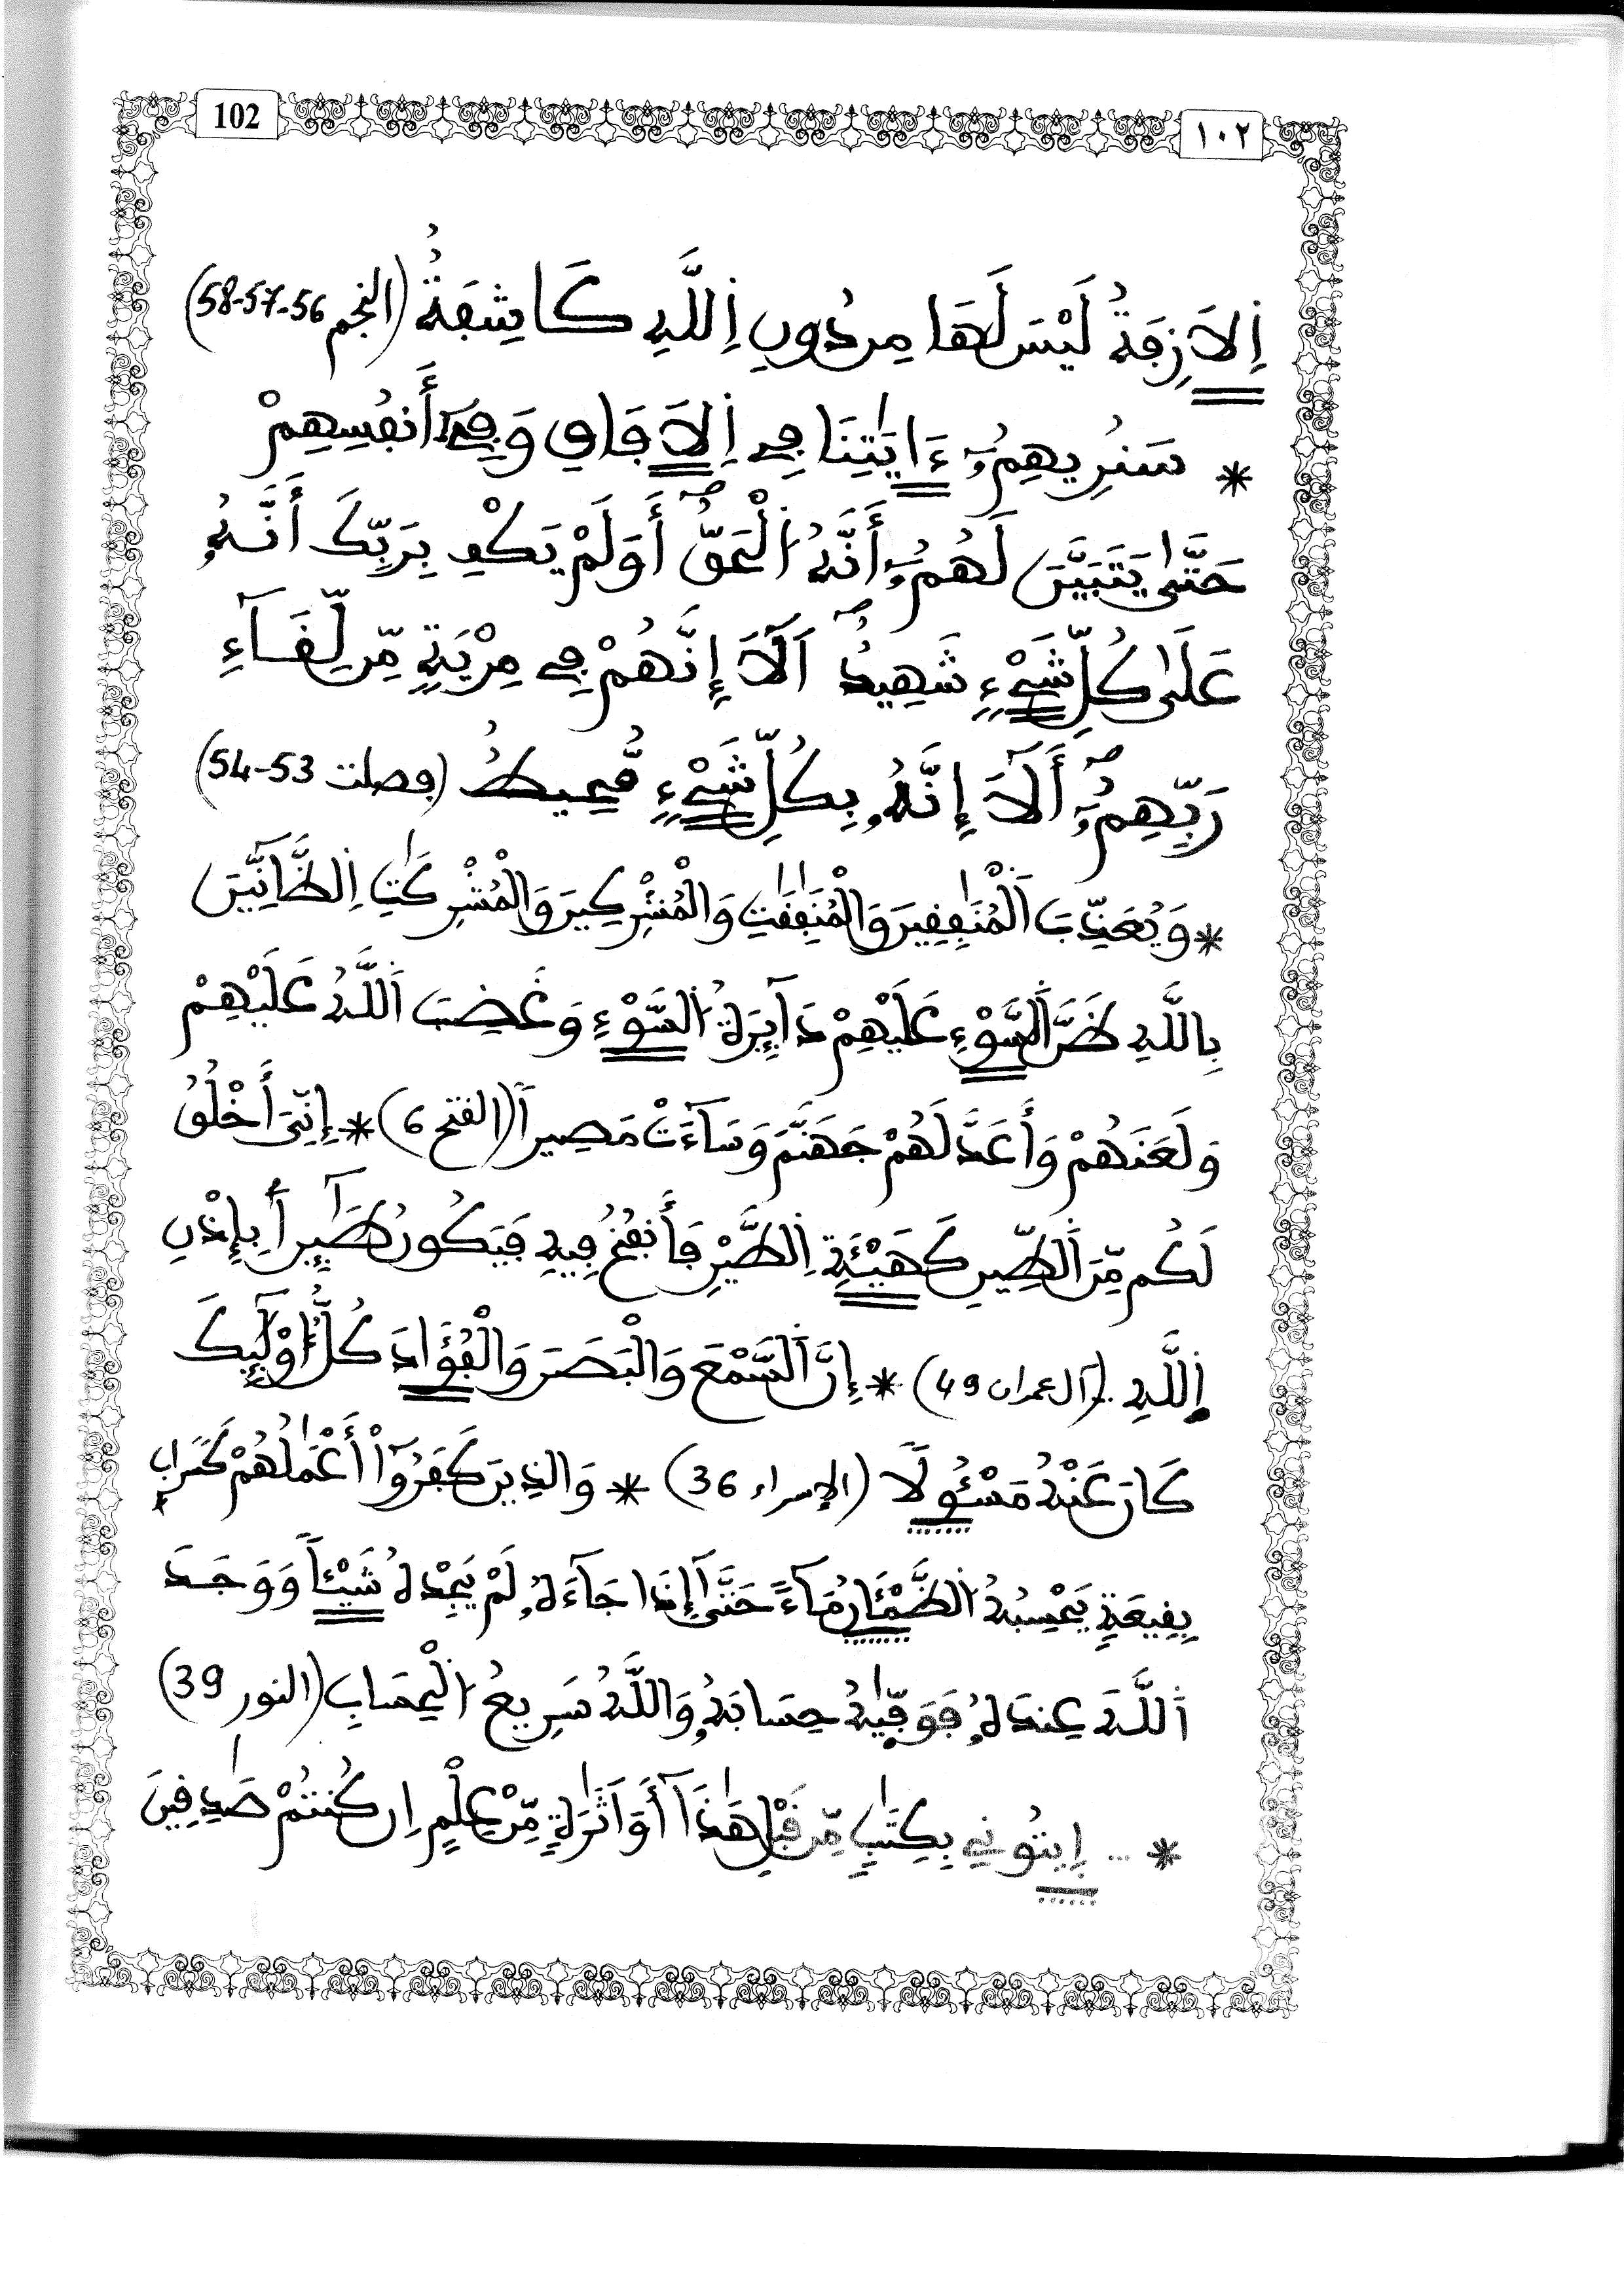 102
١٠٢
اِ۬لَازِفَةُ لَيْسَ لَهَا مِن دُونِ اِ۬للَّهِ كَاشِفَةٌ (النجم 56-57-58)
* سَنُرِيهِمُۥٓ ءَايَٰتِنَا فِے اِ۬لَافَاقِ وَفِےٓ أَنفُسِهِمْ
حَتَّىٰ يَتَبَيَّنَ لَهُمُۥٓ أَنَّهُ اُ۬لْحَقُّ أَوَلَمْ يَكْفِ بِرَبِّكَ أَنَّهُۥ
عَلَىٰ كُلِّ شَےْءٍ شَهِيدٌ اَلَآ إِنَّهُمْ فِے مِرْيَةٍ مِّن لِّقَآءِ
رَبِّهِمُۥٓ أَلَآ إِنَّهُۥ بِكُلِّ شَےْءٍ مُّحِيطٌ (فصلت 53-54)
* وَيُعَذِّبَ اَ۬لْمُنَٰفِقِينَ وَالْمُنَٰفِقَٰتِ وَالْمُشْرِكِينَ وَالْمُشْرِكَٰتِ اِ۬لظَّآنِّينَ
بِاللَّهِ ظَنَّ اَ۬لسَّوْءِ عَلَيْهِمْ دَآئِرَةُ اُ۬لسَّوْءِ وَغَضِبَ اَ۬للَّهُ عَلَيْهِمْ
وَلَعَنَهُمْ وَأَعَدَّ لَهُمْ جَهَنَّمَ وَسَآءَتْ مَصِيراً (الفتح 6) * إِنِّيَ أَخْلُقُ
لَكُم مِّنَ اَ۬لطِّينِ كَهَيْـَٔةِ اِ۬لطَّيْرِ فَأَنفُخُ فِيهِ فَيَكُونُ طَٰٓئِراً بِإِذْنِ
اِ۬للَّهِ .. (آل عمران 49) * إِنَّ اَ۬لسَّمْعَ وَالْبَصَرَ وَالْفُؤَادَ كُلُّ أُوْلَٰٓئِكَ
كَانَ عَنْهُ مَسْـُٔولًا (الإسراء 36) * وَالذِينَ كَفَرُوٓاْ أَعْمَٰلُهُمْ كَسَرَابِۢ
بِقِيعَةٍ يَحْسِبُهُ اُ۬لظَّمْـَٔانُ مَآءً حَتَّىٰٓ إِذَا جَآءَهُۥ لَمْ يَجِدْهُ شَيْـٔاً وَوَجَدَ
اَ۬للَّهَ عِندَهُۥ فَوَفَّيٰهُ حِسَابَهُۥ وَاللَّهُ سَرِيعُ اُ۬لْحِسَابِ (النور 39)
* ... اِيتُونِي بِكِتَٰبٍ مِّن قَبْلِ هَٰذَآ أَوَ اَثَٰرَةٍ مِّنْ عِلْمٍ اِن كُنتُمْ صَٰدِقِينَ